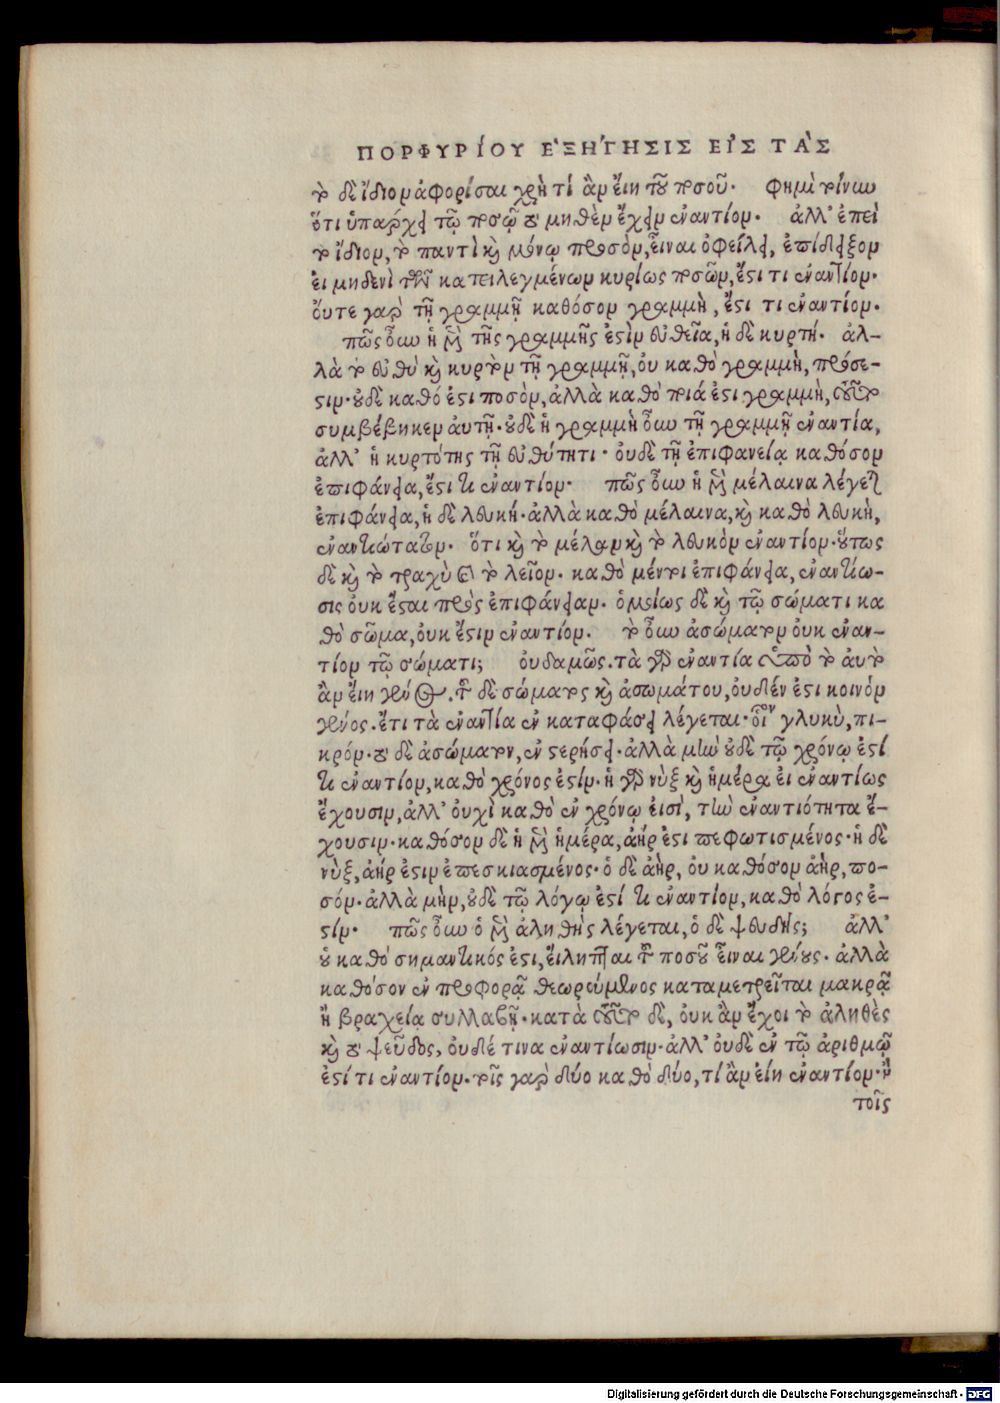 ΠΟΡΦΥΡΙΟΥ ΕΞΗΓΗΣΙΣ ΕΙΣ ΤΑΣ
τὸ δὲ ἴδιον ἀφορίσαι χρὴ τί ἂν εἴη τοῦ ποσοῦ. φημὶ τοίνυν
ὅτι ὑπάρχει τῷ ποσῷ τὸ μηθὲν ἔχειν ἐναντίον. ἀλλ' ἐπεὶ
τὸ ἴδιον, τὸ παντὶ καὶ μόνῳ προσὸν, εἶναι ὀφείλει, ἐπίδειξον
εἰ μηδενὶ τῶν κατειλεγμένων κυρίως ποσῶν, ἔστι τι ἐναντίον.
οὔτε γὰρ τῇ γραμμῇ καθόσον γραμμὴ, ἔστι τι ἐναντίον.
πῶς οὖν ἡ μὲν τῆς γραμμῆς ἐστὶν εὐθεῖα, ἡ δὲ κυρτή. ἀλ-
λὰ τὸ εὐθὺ καὶ κυρτὸν τῇ γραμμῇ, οὐ καθὸ γραμμὴ, πρόσε-
στιν. οὐδὲ καθό ἐστι ποσὸν, ἀλλὰ καθὸ ποιά ἐστι γραμμὴ, τοῦτο
συμβέβηκεν αὐτῇ. οὐδὲ ἡ γραμμὴ οὖν τῇ γραμμῇ ἐναντία,
ἀλλ' ἡ κυρτότης τῇ εὐθύτητι. οὐδὲ τῇ ἐπιφανείᾳ καθόσον
ἐπιφάνεια, ἔστι τι ἐναντίον. πῶς οὖν ἡ μὲν μέλαινα λέγεται
ἐπιφάνεια, ἡ δὲ λευκή. ἀλλὰ καθὸ μέλαινα, καὶ καθὸ λευκὴ,
ἐναντιώταται. ὅτι καὶ τὸ μέλαν καὶ τὸ λευκὸν ἐναντίον. οὕτως
δὲ καὶ τὸ τραχὺ καὶ τὸ λεῖον. καθὸ μέντοι ἐπιφάνεια, ἐναντίω-
σις οὐκ ἔσται πρὸς ἐπιφάνειαν. ὁμοίως δὲ καὶ τῷ σώματι κα
θὸ σῶμα, οὐκ ἔστιν ἐναντίον. τὸ οὖν ἀσώματον οὐκ ἐναν-
τίον τῷ σώματι; οὐδαμῶς. τὰ γὰρ ἐναντία ὑπὸ τὸ αὐτὸ
ἂν εἴη γένος. τοῦ δὲ σώματος καὶ ἀσωμάτου, οὐδέν ἐστι κοινὸν
γένος. ἔτι τὰ ἐναντία ἐν καταφάσει λέγεται. οἷον γλυκὺ, πι-
κρόν. τὸ δὲ ἀσώματον, ἐν στερήσει. ἀλλὰ μὴν οὐδὲ τῷ χρόνῳ ἐστί
τι ἐναντίον, καθὸ χρόνος ἐστίν. ἡ γὰρ νὺξ καὶ ἡμέρα εἰ ἐναντίως
ἔχουσιν, ἀλλ' οὐχὶ καθὸ ἐν χρόνῳ εἰσὶ, τὴν ἐναντιότητα ἔ-
χουσιν. καθόσον δὲ ἡ μὲν ἡμέρα, ἀήρ ἐστι πεφωτισμένος. ἡ δὲ
νὺξ, ἀήρ ἐστιν ἐπεσκιασμένος. ὁ δὲ ἀὴρ, οὐ καθόσον ἀὴρ, πο-
σόν. ἀλλὰ μὴν, οὐδὲ τῷ λόγῳ ἐστί τι ἐναντίον, καθὸ λόγος ἐ-
στίν. πῶς οὖν ὁ μὲν ἀληθὴς λέγεται, ὁ δὲ ψευδής; ἀλλ'
οὐ καθὸ σημαντικός ἐστι, εἴληπται τοῦ ποσοῦ εἶναι γένους. ἀλλὰ
καθόσον ἐν προφορᾷ θεωρούμενος καταμετρεῖται μακρᾷ
ἢ βραχείᾳ συλλαβῇ. κατὰ τοῦτο δὲ, οὐκ ἂν ἔχοι τὸ ἀληθὲς
καὶ τὸ ψεῦδος, οὐδέ τινα ἐναντίωσιν. ἀλλ' οὐδὲ ἐν τῷ ἀριθμῷ
ἐστί τι ἐναντίον. τοῖς γὰρ δύο καθὸ δύο, τί ἂν εἴη ἐναντίον. ἢ
τοῖς
Digitalisierung gefördert durch die Deutsche Forschungsgemeinschaft - DFG